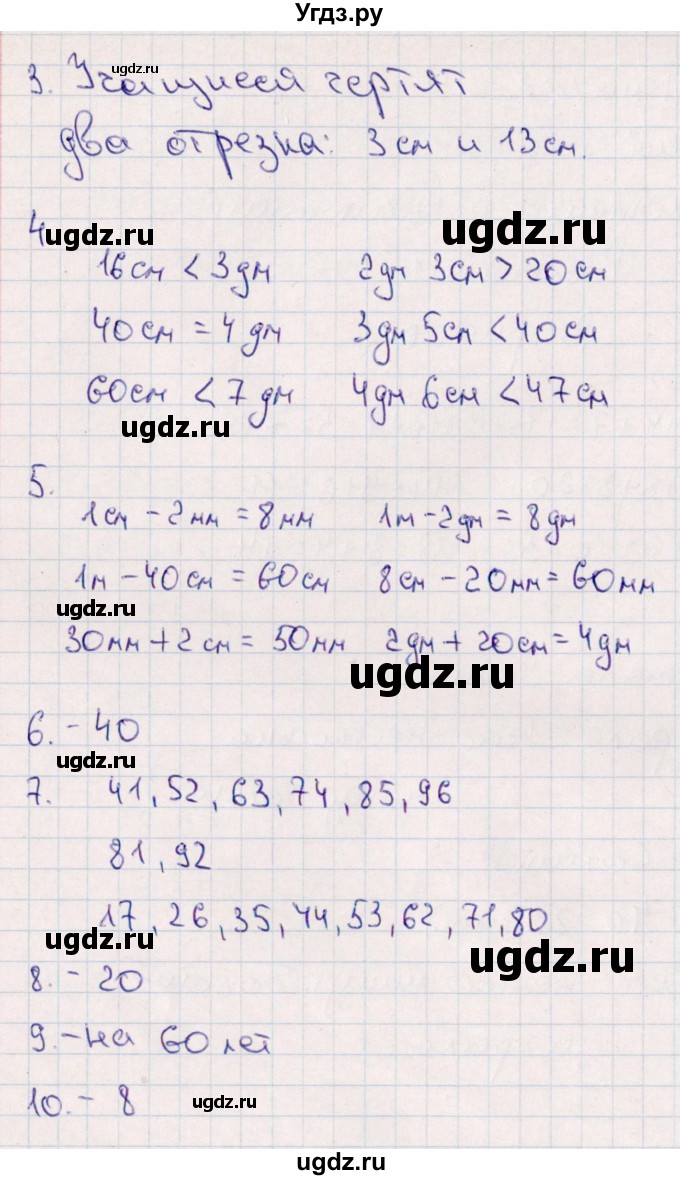 Угдз.ру
ugdz.ru
3. Учащиеся чертят
два отрезка: 3 см и 13 см.
4
ugdz.ru ugdz.ru
16 см < 3 дм 2 дм 3 см > 20 см
40 см = 4 дм 3 дм 5 см < 40 см
60 см < 7 дм 4 дм 6 см < 47 см
ugdz.ru
5.
1 см - 2 мм = 8 мм 1 м - 2 дм = 8 дм
1 м - 40 см = 60 см 8 см - 20 мм = 60 мм
ugdz.ru
30 мм + 2 см = 50 мм 2 дм + 20 см = 4 дм
ugdz.ru
6. - 40
ugdz.ru
7. 41, 52, 63, 74, 85, 96
81, 92
17, 26, 35, 44, 53, 62, 71, 80
ugdz.ru ugdz.ru
8. - 20
9. - на 60 лет
10. - 8
ugdz.ru
ugdz.ru